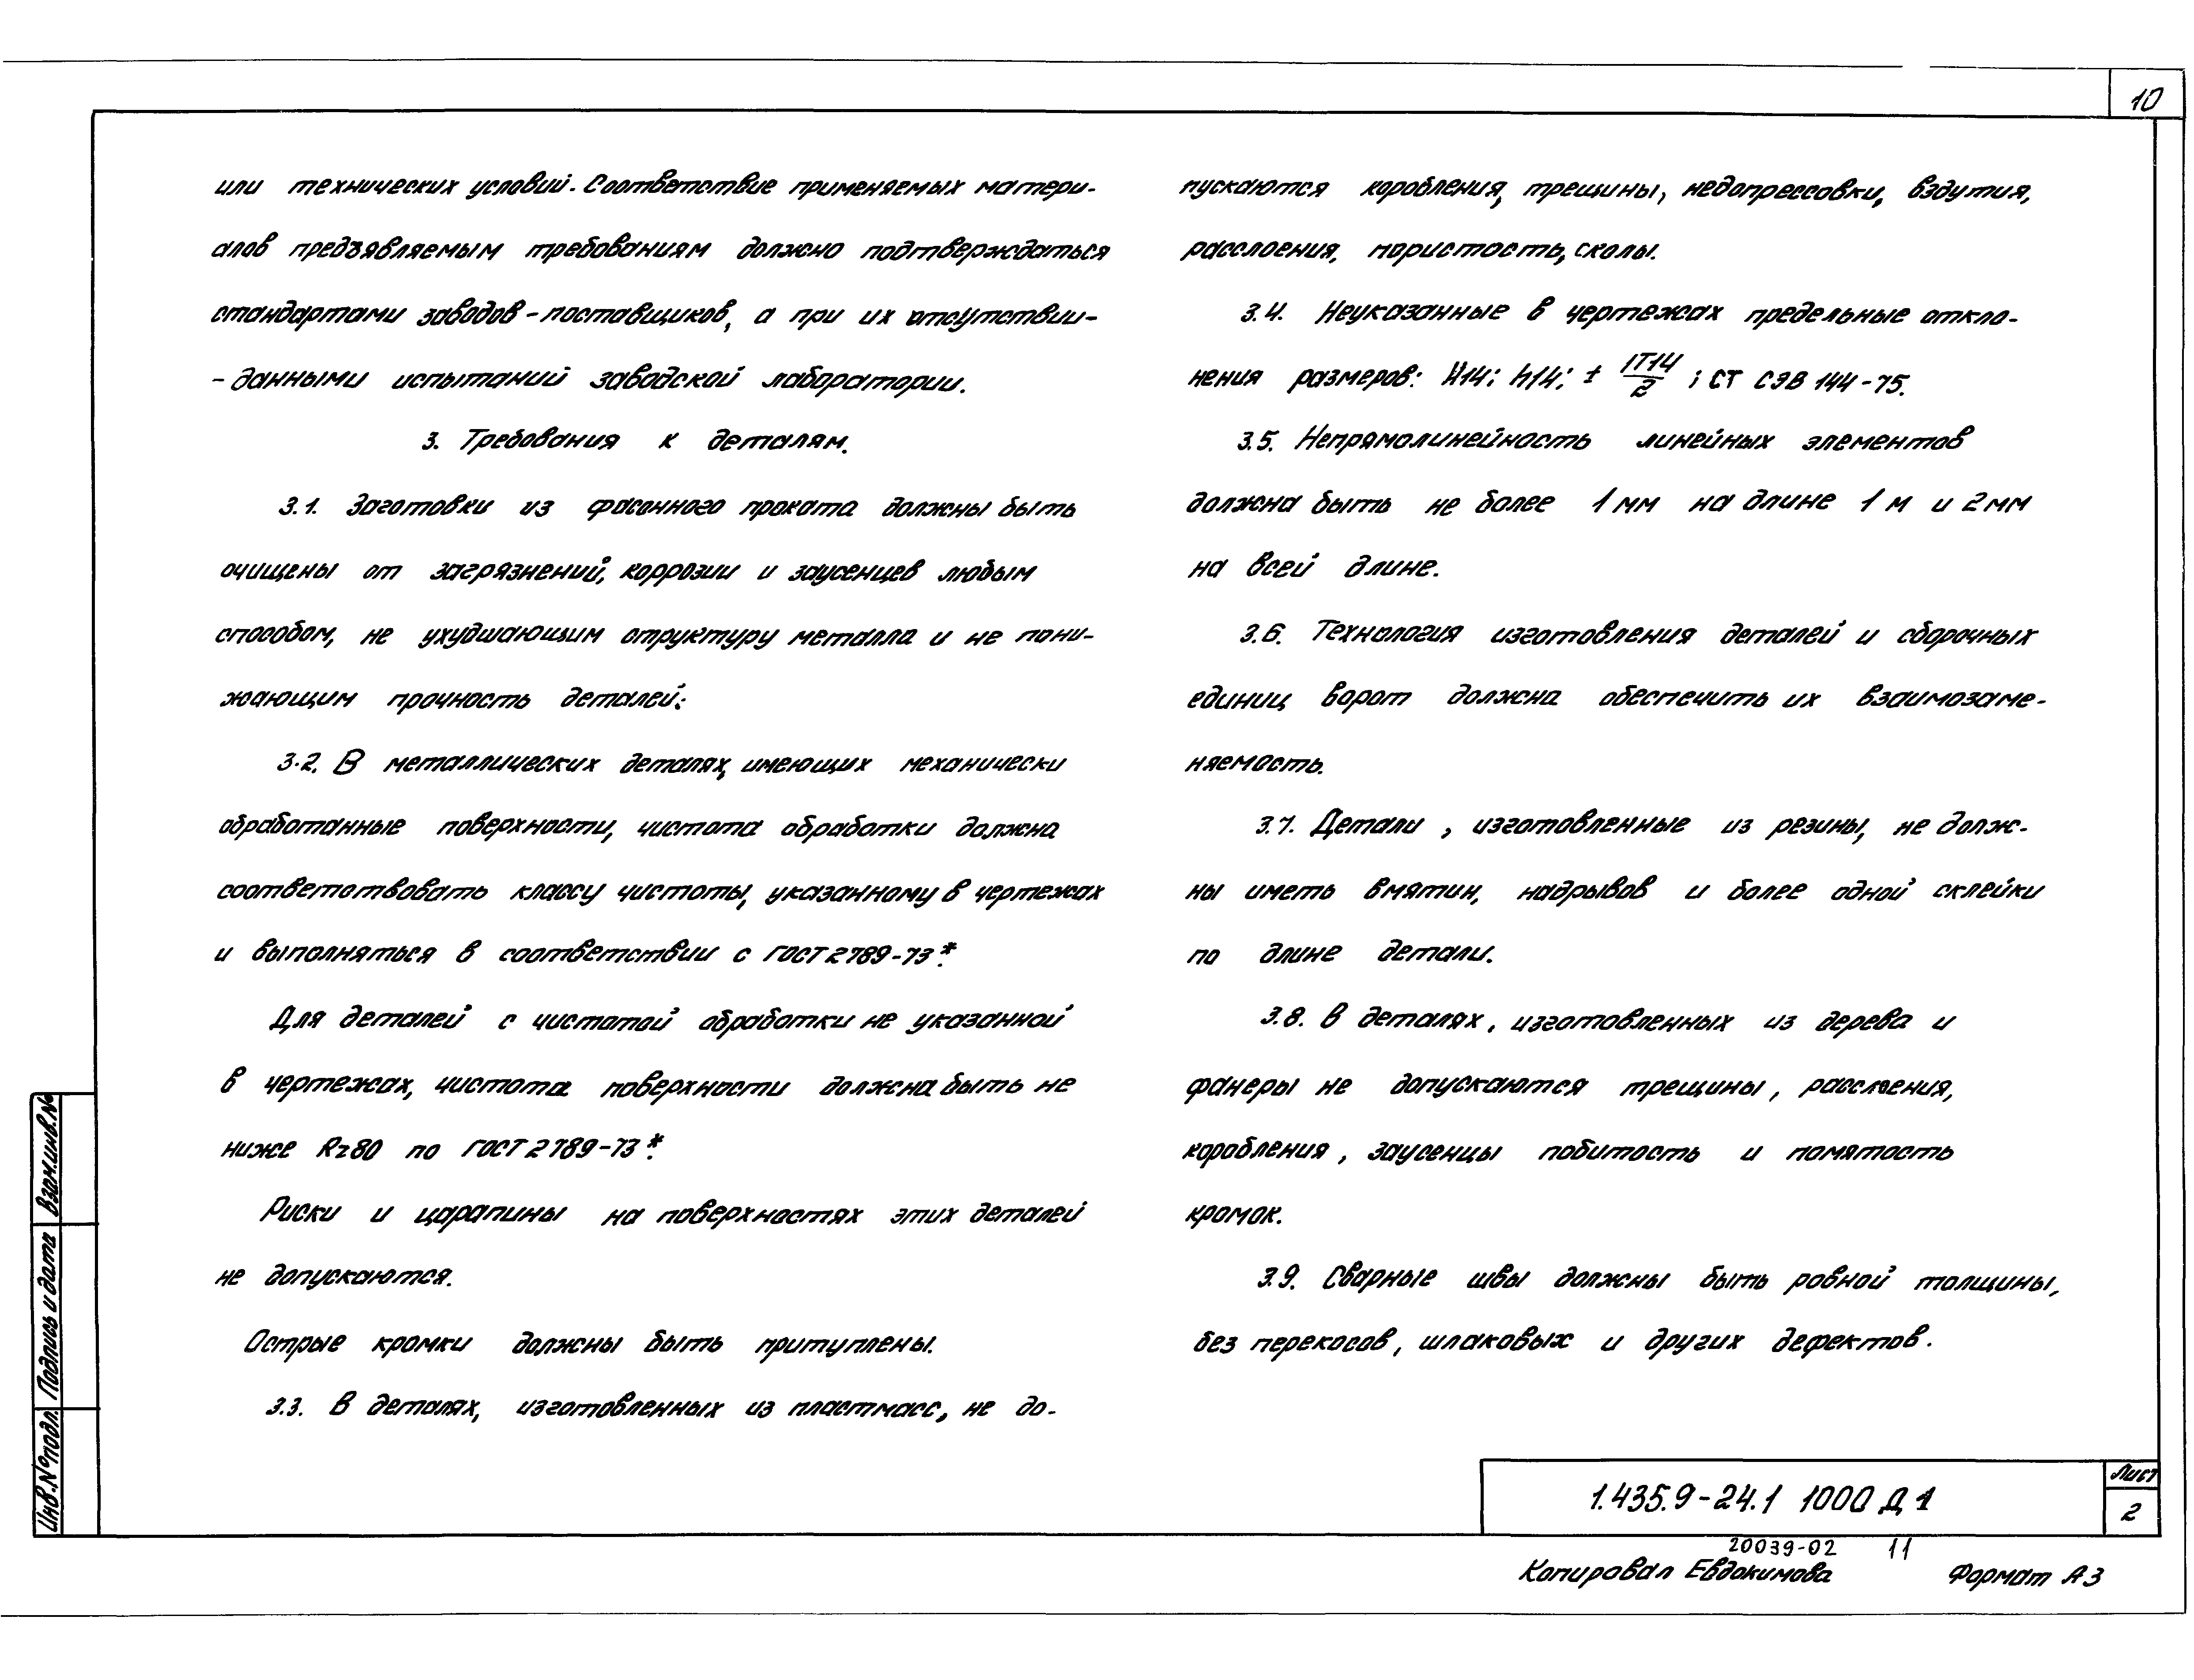 10
или технических условий. Соответствие применяемых матери-
алов предъявляемым требованиям должно подтверждаться
стандартами заводов-поставщиков, а при их отсутствии-
-данными испытаний заводской лаборатории.
3. Требования к деталям.
3.1. Заготовки из фасонного проката должны быть
очищены от загрязнений, коррозии и заусенцев любым
способом, не ухудшающим структуру металла и не пони-
жающим прочность деталей.
3.2. В металлических деталях, имеющих механически
обработанные поверхности, чистота обработки должна
соответствовать классу чистоты, указанному в чертежах
и выполняться в соответствии с ГОСТ 2789-73*.
Для деталей с чистотой обработки не указанной
в чертежах, чистота поверхности должна быть не
ниже Rz80 по ГОСТ 2789-73*.
Риски и царапины на поверхностях этих деталей
не допускаются.
Острые кромки должны быть притуплены.
3.3. В деталях, изготовленных из пластмасс, не до-
пускаются коробления, трещины, недопрессовки, вздутия,
расслоения, пористость, сколы.
3.4. Неуказанные в чертежах предельные откло-
нения размеров: H14; h14; ± IT14/2 ; СТ СЭВ 144-75.
3.5. Непрямолинейность линейных элементов
должна быть не более 1 мм на длине 1 м и 2 мм
на всей длине.
3.6. Технология изготовления деталей и сборочных
единиц ворот должна обеспечить их взаимозаме-
няемость.
3.7. Детали, изготовленные из резины, не долж-
ны иметь вмятин, надрывов и более одной склейки
по длине детали.
3.8. В деталях, изготовленных из дерева и
фанеры не допускаются трещины, расслоения,
коробления, заусенцы побитость и помятость
кромок.
3.9. Сварные швы должны быть ровной толщины,
без перекосов, шлаковых и других дефектов.
Взам.инв.№
Подпись и дата
Инв.№подл.
1.435.9-24.1 1000 Д1
Лист
2
20039-02 11
Копировал Евдокимова Формат А3